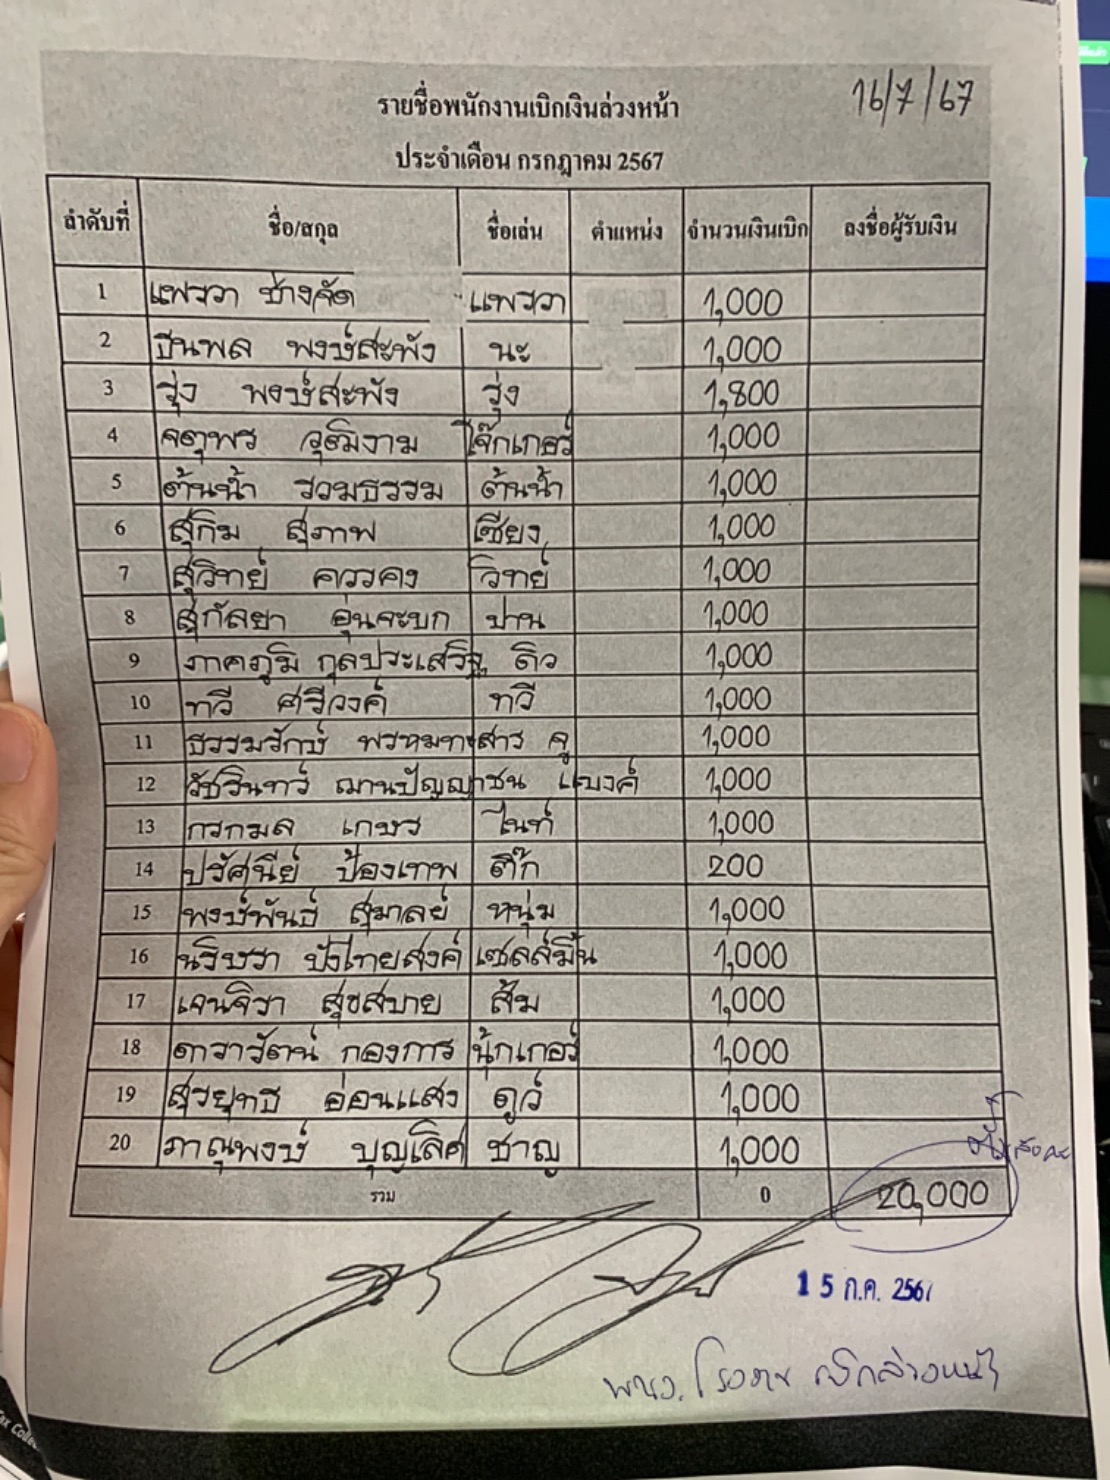 16/7/67
รายชื่อพนักงานเบิกเงินล่วงหน้า
ประจำเดือน กรกฎาคม 2567
ลำดับที่ ชื่อ/สกุล ชื่อเล่น ตำแหน่ง จำนวนเงินเบิก ลงชื่อผู้รับเงิน
1 แพรวา ช่างจัด แพรวา 1,000
2 ธีนพล พงษ์สะพัง นะ 1,000
3 รุ่ง พงษ์สะพัง รุ่ง 1,800
4 จตุพร วุฒิงาม โจ๊กเกอร์ 1,000
5 ต้นน้ำ รวมธรรม ต้นน้ำ 1,000
6 สุกิม สุภาพ เซียง 1,000
7 สุวิทย์ ควรคง วิทย์ 1,000
8 สุกัลยา อุ่นจะบก ปาน 1,000
9 ภาคภูมิ กุลประเสริฐ ดิว 1,000
10 ทวี ศรีวงค์ ทวี 1,000
11 ธรรมรักษ์ พรหมทะสาร จู 1,000
12 วัชรินทร์ ฌานปัญญาชน แบงค์ 1,000
13 กรกมล เกษร ไนท์ 1,000
14 ปรัศนีย์ ป้องเทพ ติ๊ก 200
15 พงษ์พันธ์ สุมาลย์ หนุ่ม 1,000
16 นริษรา ปังไทยสงค์ เซลส์มิ้น 1,000
17 เจนจิรา สุขสบาย ส้ม 1,000
18 ดารารัตน์ กองการ นุ้กเกอร์ 1,000
19 สุรยุทธ อ่อนแสง ดูว์ 1,000
20 ภาณุพงษ์ บุญเลิศ ชาญ 1,000
รวม 0 20,000
15 ก.ค. 2567
พนง. โรงงาน เบิกล่วงหน้า